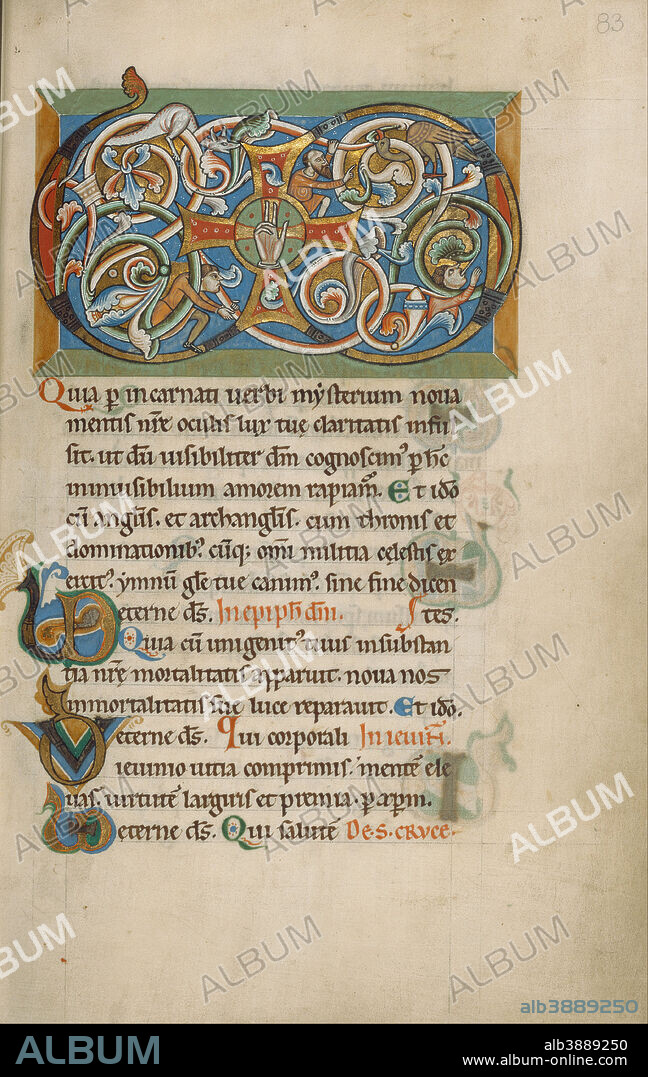 83
Quia p incarnati uerbi mysterium noua
mentis nr̄e oculis lux tuę claritatis infu
sit. ut dū uisibiliter dm̄ cognoscim᾽ p hc̄
inuisibilium amorem rapiam᾽. Et idō
cū anglis. et archanglis. cum thronis et
dominationib᾽. cūq; om̄i militia cęlestis ex
ercit᾽. ymnū glē tue canim᾽. sine fine dicen
eterne ds̄. In epiph dn̄i. Stes.
Quia cū unigenit᾽ tuus in substan
tia nr̄ę mortalitatis apparuit. noua nos
inmortalitatis suę luce reparauit. Et idō.
eterne ds̄. Qui corporali In ieiuń.
ieiunio uitia comprimis. mentē ele
uas. uirtutē largiris et premia. p xpm̄.
eterne ds̄. Qui salutē De. S. CRVCE.
ALBUM
alb3889250
ALBUM
alb3889250
www.album-online.com